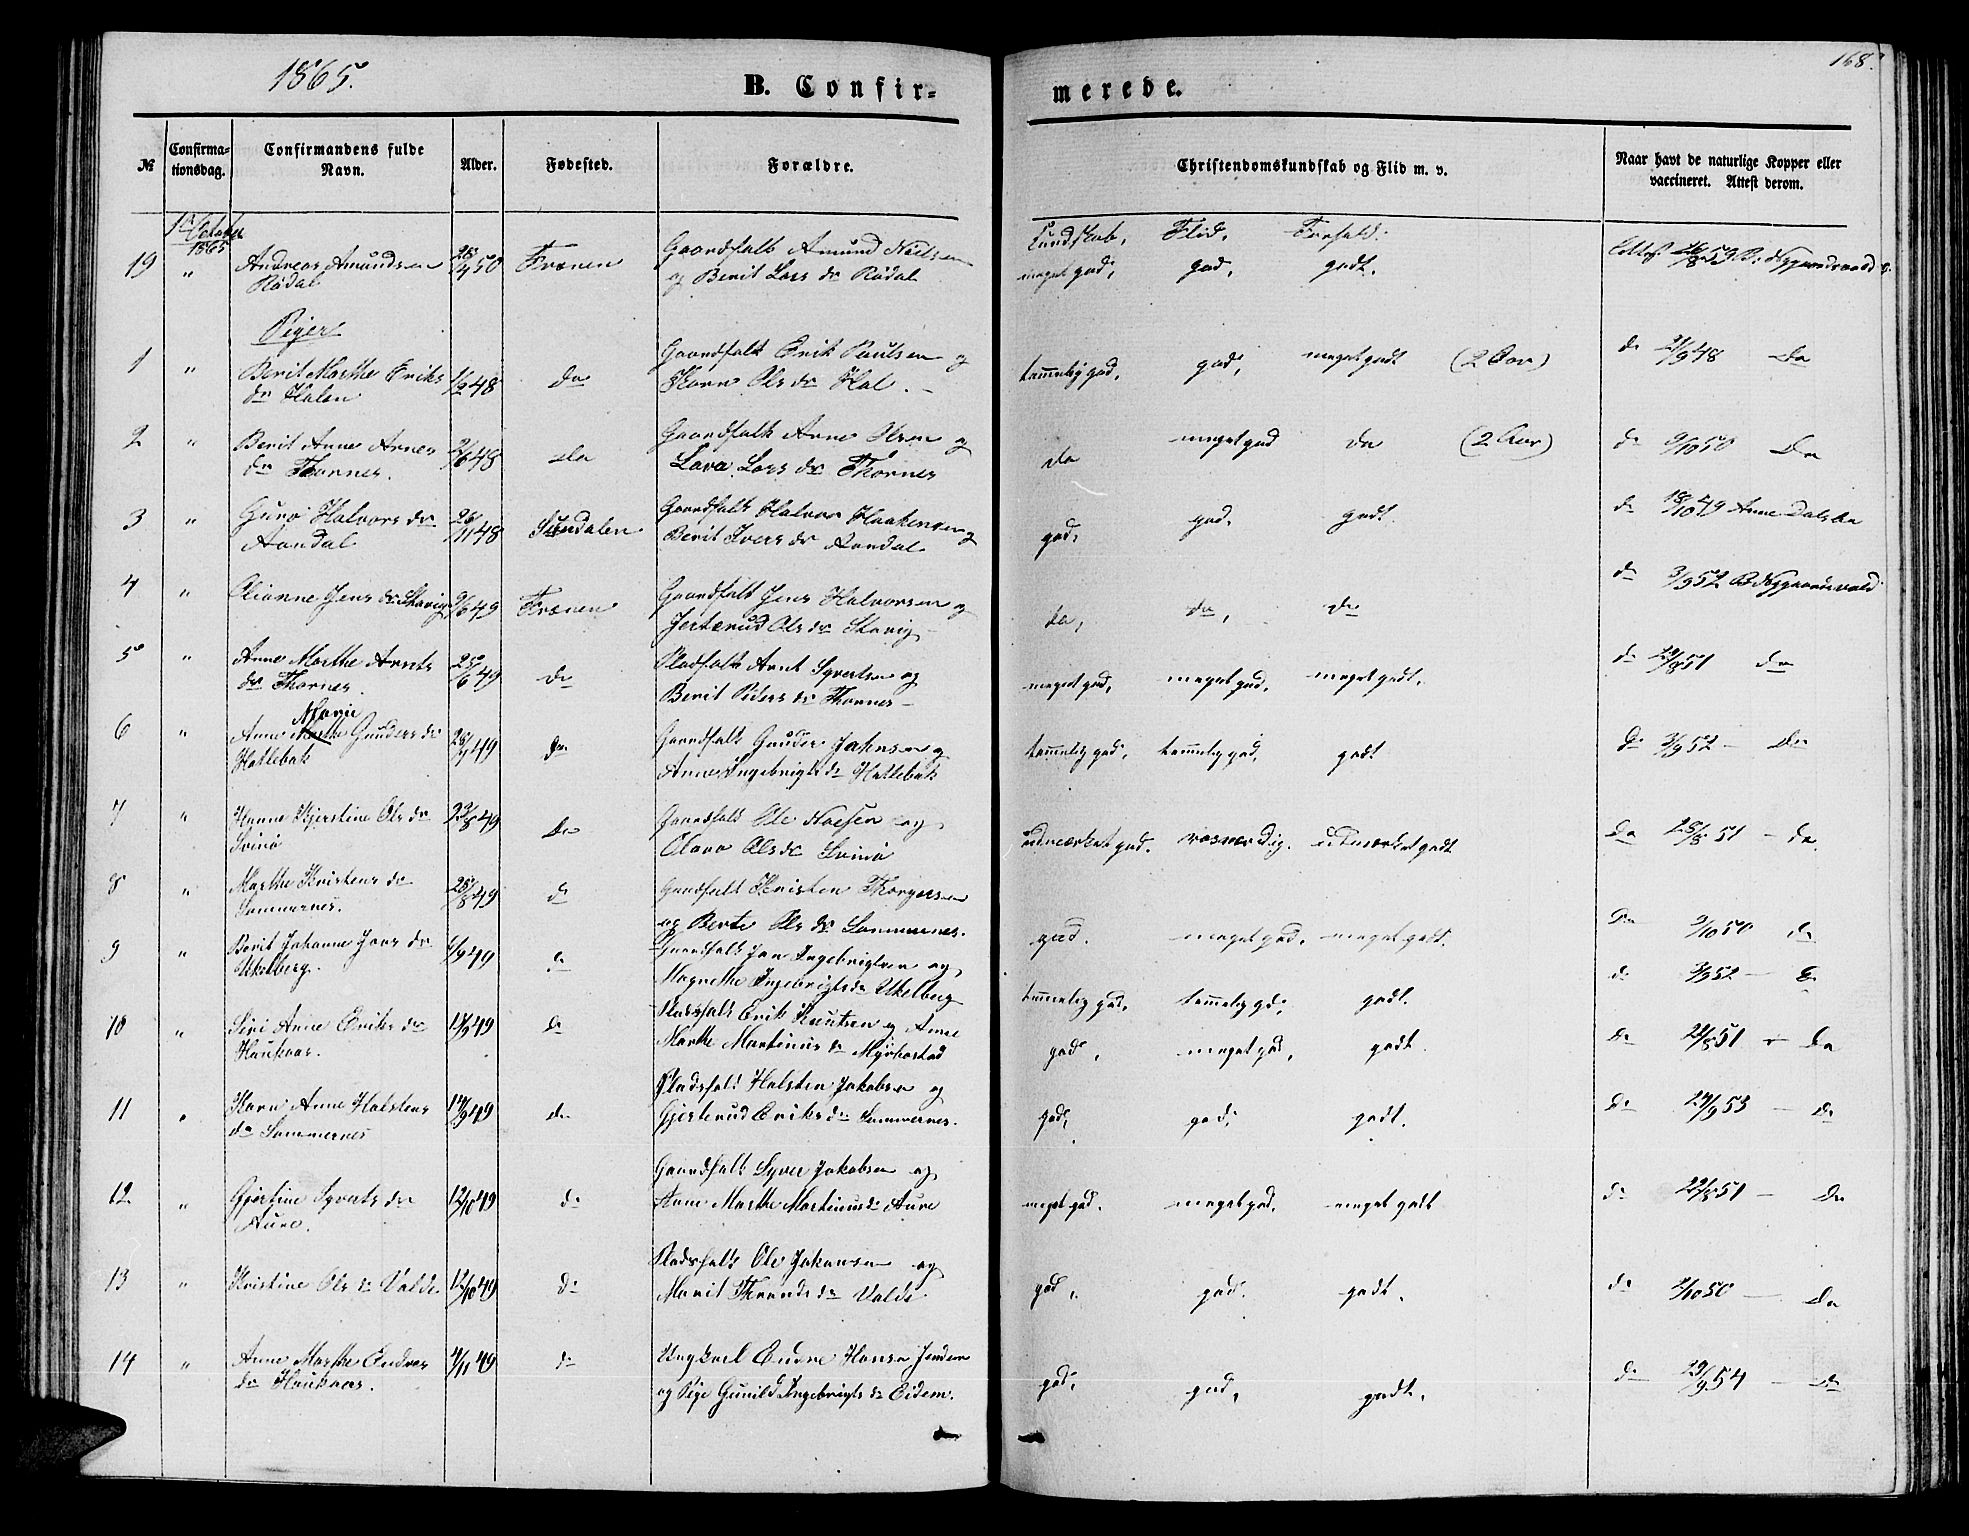 1865.
B. Confir-
merede.
168.
№
Confirma-
tionsdag.
Confirmandens fulde
Navn.
Alder.
Fødested.
Forældre.
Christendomskundskab og Flid m. v.
Naar havt de naturlige Kopper eller
vaccineret. Attest derom.
October
1865
Kundskab, Flid, Forhold:
19 " Andreas Amundsen
Rødal
50 Frænen
Gaardfolk Amund Nielsen
og Berit Lars dr Rødal
meget god, god, godt.
Attest 26/8 59
Piger
1 " Berit Marthe Eriks
dr Halsen
1/2 48 do
Gaardfolk Erik Paulsen og
Karen Ols dr Hol.
temmelig god, god, meget godt (2 Aar)
do 21/9 48 do
2 " Berit Anne Arnes
dr Thornes.
2/6 48 do
Gaardfolk Arne Olsen og
Lava Lars dr Thornes
do meget god do (2 Aar)
do 9/10 50 do
3 " Guro Halvors dr
Aandal
26/11 48 Sundalen
Gaardfolk Halvor Haakensen og
Berit Ivers dr Aandal
god, god. godt.
do 18/10 49 Anne Dalsbø
4 " Elianne Jens dr Stavig
9/6 49 Frænen
Gaardfolk Jens Halvorsen og
Jertrud Ols dr Stavig
do, do, do
do 3/9 52
5 " Anne Marthe Arnts
dr Thornes.
25/6 49 do
Pladsfolk Arnt Syvertsen og
Berit Peders dr Thornes
meget god, meget god, meget godt.
do 29/8 51 do
Marie
6 " Anne Gunders dr
Hatlebak
28/7 49 do
Gaardfolk Gunder Johnsen og
Anne Ingebrigts dr Hatlebak
temmelig god, temmelig god, godt
do 3/9 52 - do
7 " Hanne Kjerstine Ols dr
Svinø
23/8 49 do
Gaardfolk Ole og
Olava Ols dr Svinø
udmærket god. udmærket godt
do 28/8 51 - do
8 " Marthe Kristens dr
Sommernes.
28/8 49 do
Gaardfolk Kristen Thorgersen
og Berte Ols dr Sommernes.
god. meget god. meget godt.
do 9/10 50 do
9 " Berit Johanne Jons dr
Ukelberg.
1/9 49 do
Gaardfolk Jon Ingebrigtsen og
Magnethe Ingebrigts dr Ukelberg
temmelig god. temmelig gd. godt.
do 3/9 52 - do
10 " Siri Anne Eriks dr
Haukaas.
49 do
Pladsfolk Erik Knutsen og Anne
Marthe Martinus dr Myrbostad
god, meget god, godt.
do 51 do
11 " Karen Anne Halstens
dr Sommernes
17/9 49 do
Pladsfolk Halsten Jakobsen og
Gjertrud Eriks dr Sommernes.
god, god, godt.
do 29/9 53 - do
12. " Gjertine Syverts dr
Aure.
12/10 49 do
Gaardfolk Syver Jakobsen og
Anne Marthe Martinus dr Aure
meget god. meget god. meget godt
do 29/8 51 - do
13 " Kristine Ols dr Valde
12/10 49 do
Pladsfolk Ole Johansen og
Marit Thronds dr Valde
god, god. godt.
do 9/10 50 - do
14 " Anne Marthe Endres
dr Haukaas.
4/11 49 do
Ungkarl Endre Hansen Jendem
og Pige Gunild Ingebrigts dr Eidem.
god, god, godt.
do 29/9 54 - do